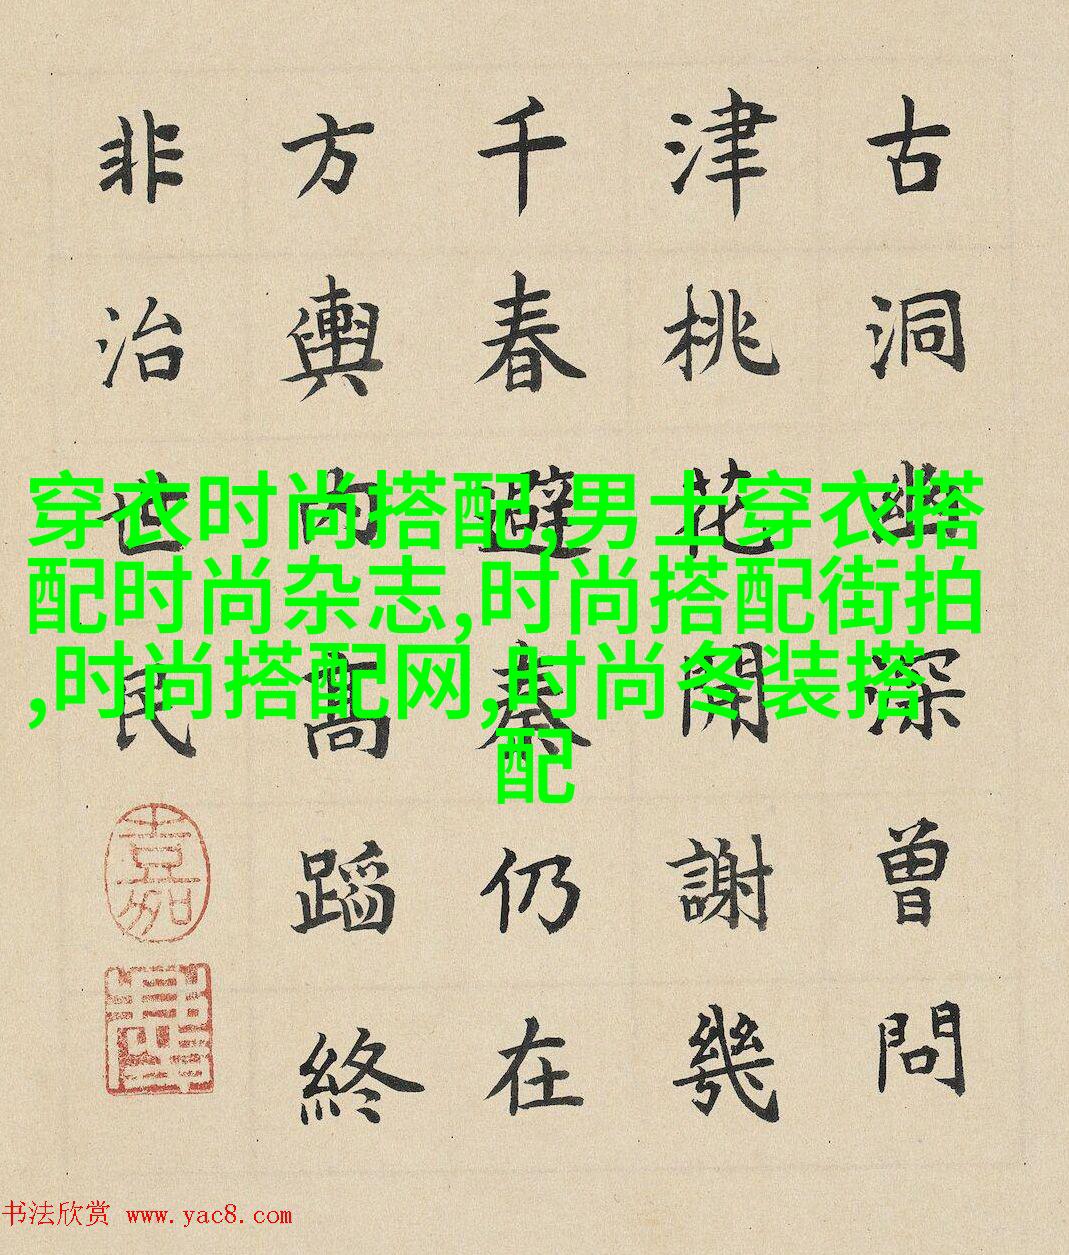 古洞幽深曾問
津桃花開謝幾
千春避秦仍在
方輿內高蹈終
非治世民
嘉
穿衣时尚搭配,男士穿衣搭
配时尚杂志,时尚搭配街拍
,时尚搭配网,时尚冬装搭
配
书法欣赏 www.yac8.com